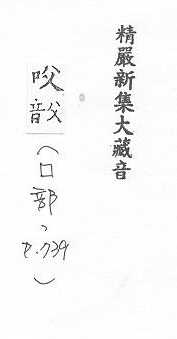 精嚴新集大藏音
㕮
音父
(口部、
P.739)